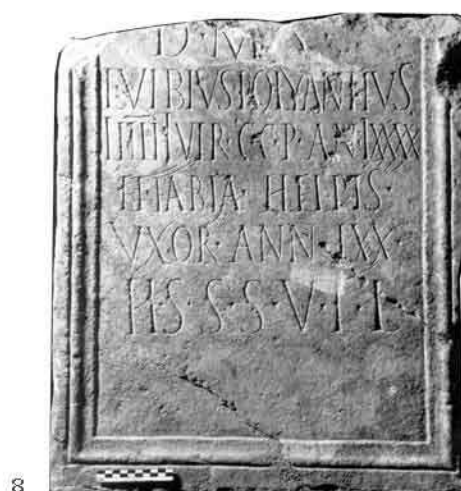 D · M · S
L·VIBIVS POLYANTHVS
IIIIII VIR·C·C·P·AN·LXXXX
ET FABIA· HELPIS·
VXOR·ANN·LXX·
H·S·S·S·V·T·L
8